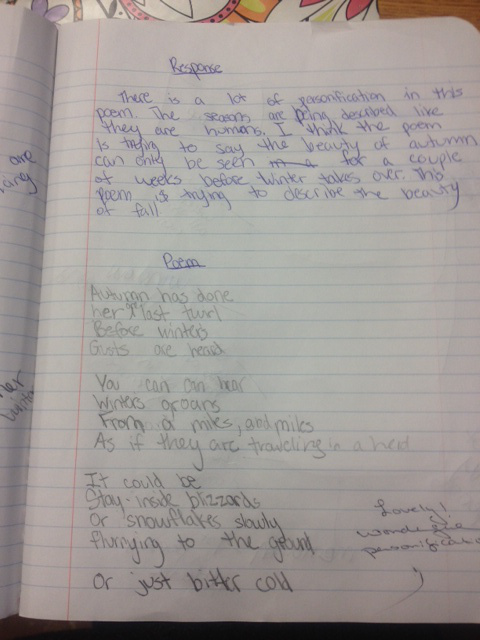 Response
There is a lot of personification in this
poem. The seasons are being described like
they are humans, I think the poem
is trying to say the beauty of autumn
can only be seen for a couple
of weeks before Winter takes over. This
poem is trying to describe the beauty
of fall
Poem
Autumn has done
her last twirl
Before winters
Gusts are heard
You can can hear
Winters groans
From a miles, and miles
As if they are traveling in a herd
It could be
Stay-inside blizzards
Or snowflakes slowly
flurrying to the ground
Or just bitter cold
Lovely!
wonderful
personification
:)
are